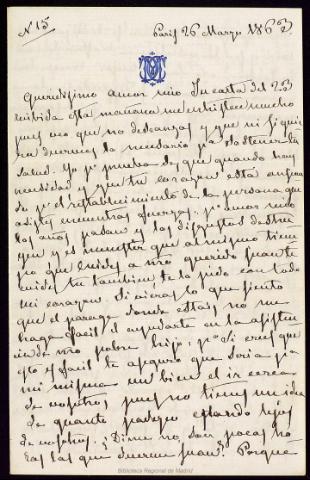 Nº 15 Paris 26 Marzo 1862
Queridisimo amor mio Tu carta del 23
recibida esta mañana me entristece mucho
pues veo que no descansas y que ni siquie
ra duermes lo necesario pª sostener la
salud. Yo pr prueba sé que quando hay
necesidad y que tu corazon está ansioso
de pr el restablecimiento de la persona que
asistes encuentras fuerzas, pº amor mio
los años pasan y los disgustos destru
yen y es menester que al mismo tiem
po que cuides a ntro querido Juan te
cuides tu tambien, te lo pido con todo
mi corazon. Si vieras lo que siento
que el parage donde estas, no me
haga facil el ayudarte en la asisten
cia de ntro pobre hijo; pº si crees que
esto es facil te aseguro que seria pª
mi misma un bien el ir cerca
de vosotros, pues no tienes una idea
de quanto padezco estando lejos
de vosotros. ¿Dime no son pocas ho
ras las que duerme Juan? Porque
Biblioteca Regional de Madrid